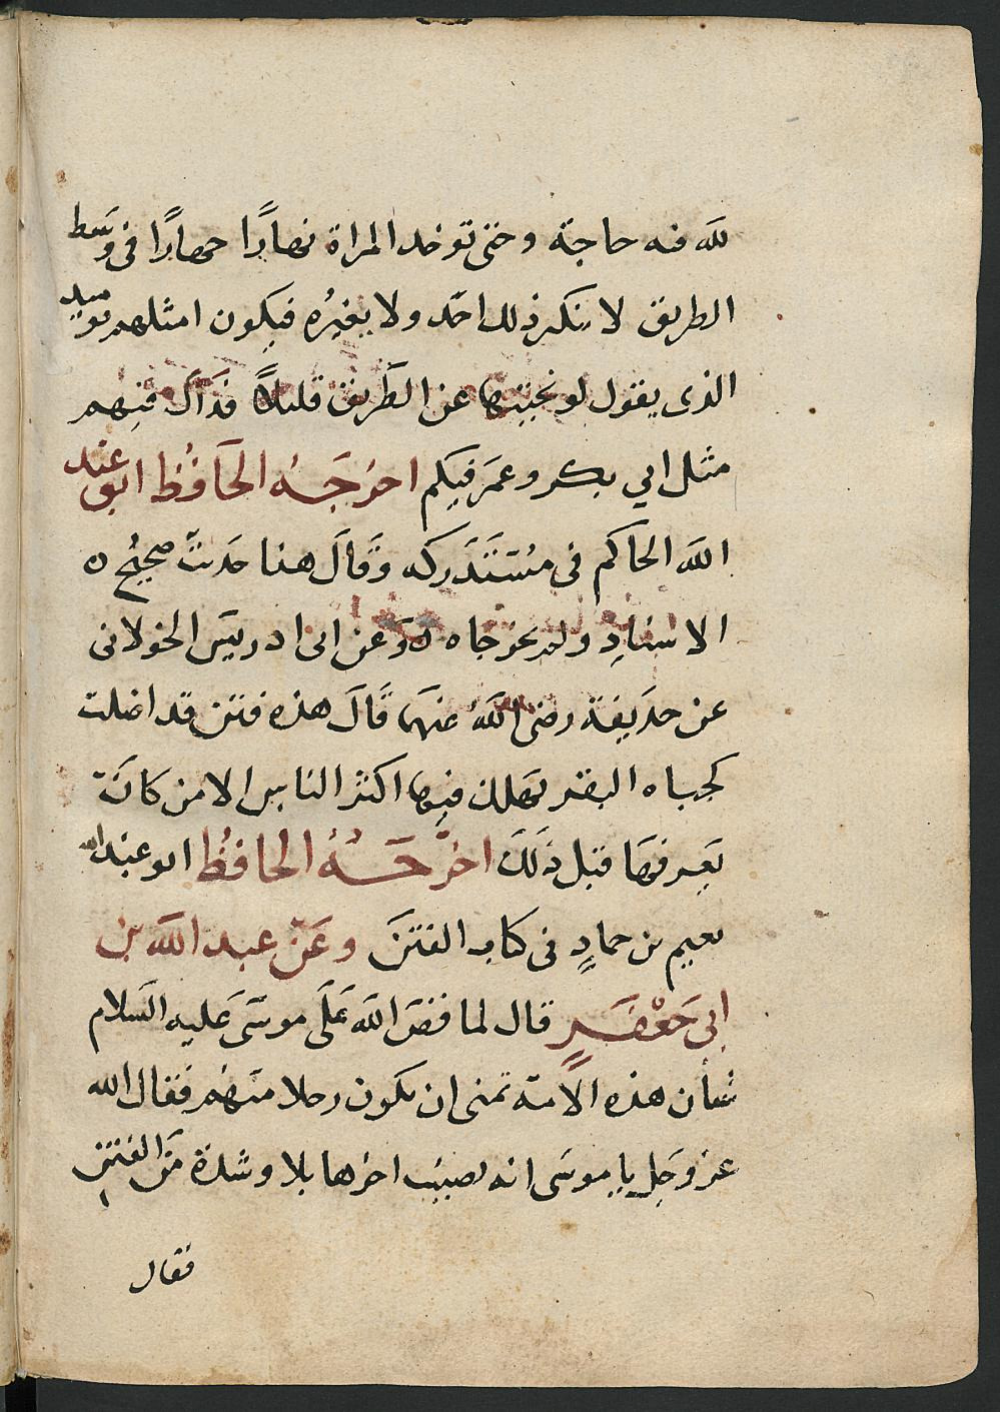 لله فيه حاجة وحتى توخد المراة نهارًا جهارًا فى وسط
الطريق لا ينكر ذلك احد ولا يغيره فيكون امثلهم يوميد
الذى يقول لو نحيتها عن الطريق قليلاً فذاك فيهم
مثل ابي بكر وعمر فيكم اخرجه الحافظ ابو عبد
الله الحاكم فى مستدركه وقال هذا حديث صحيح ه
الاسناد ولم يخرجاه ه وعن ابى ادريس الخولانى
عن حذيفة رضى الله عنهما قال هذه فتن قد اضلت
كجباه البقر يهلك فيها اكثر الناس الا من كان
يعرفها قبل ذلك اخرجه الحافظ ابو عبد الله
نعيم بن حماد فى كتاب الفتن وعن عبد الله بن
ابى جعفر قال لما قص الله على موسى عليه السلام
شأن هذه الامة تمنى ان يكون رجلا منهم فقال الله
عز وجل يا موسى انه يصيب اخرها بلا وشدة من الفتن
فقال